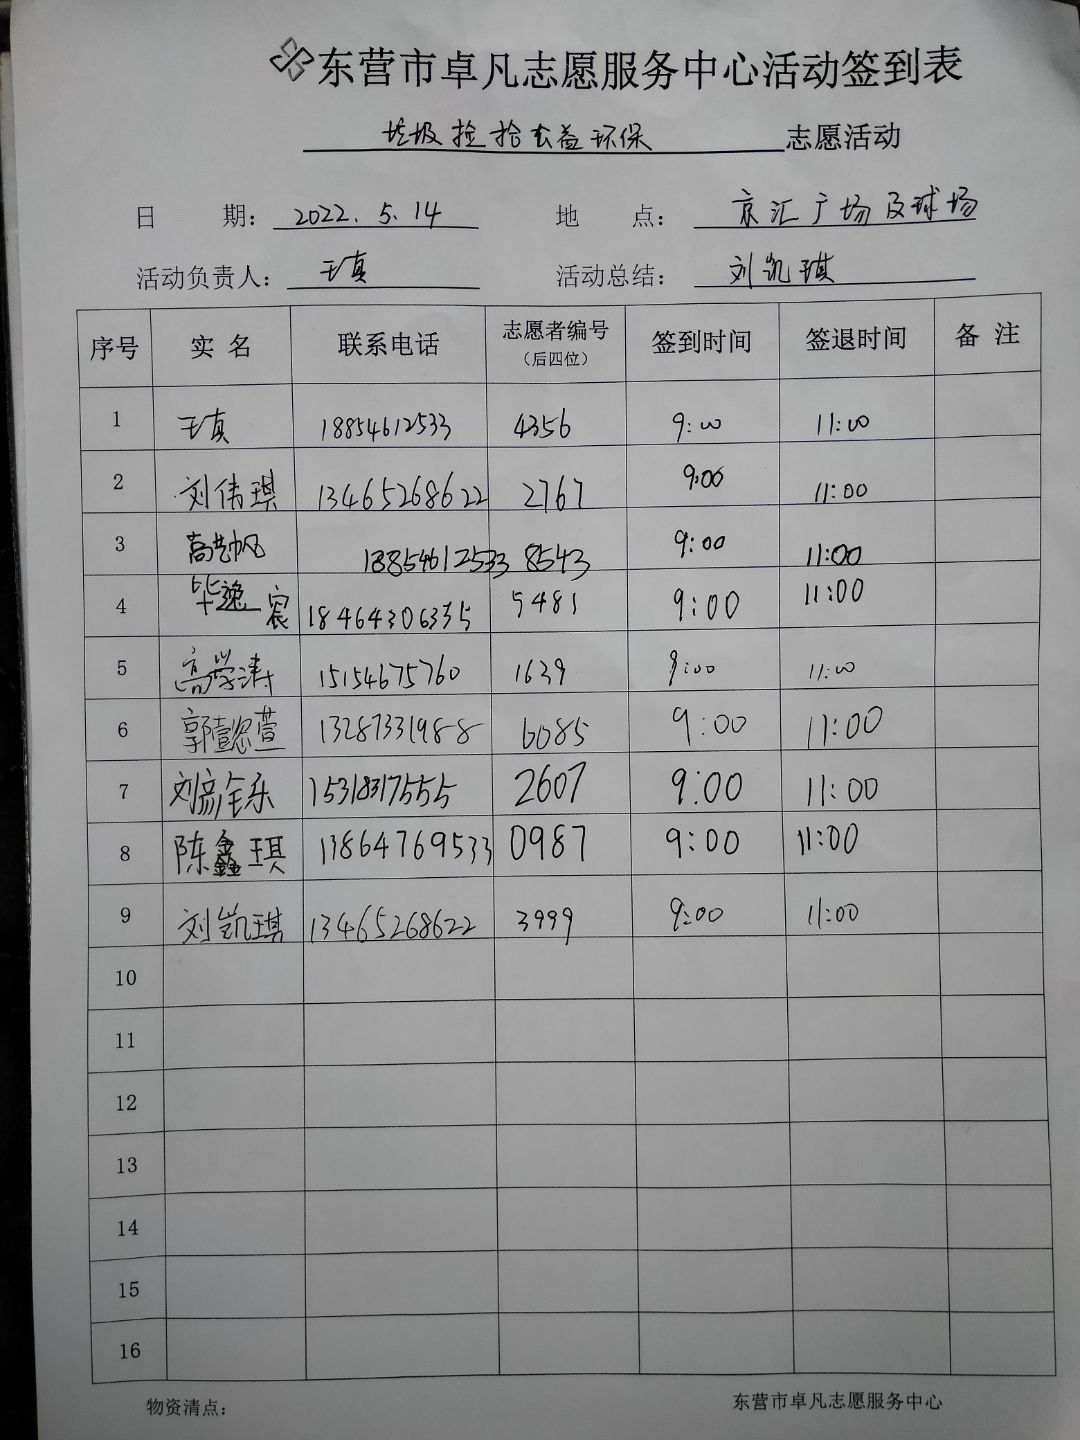 东营市卓凡志愿服务中心活动签到表
垃圾捡拾公益环保 志愿活动
日 期: 2022.5.14 地 点: 京汇广场及球场
活动负责人: 王真 活动总结: 刘凯琪
序号 实名 联系电话 志愿者编号(后四位) 签到时间 签退时间 备注
1 王真 18854612533 4356 9:00 11:00
2 刘倩琪 13465268622 2767 9:00 11:00
3 高艺帆 18854612533 8543 9:00 11:00
4 毕逸宸 18464306335 5481 9:00 11:00
5 高学涛 15154675760 1639 9:00 11:00
6 郭懿萱 13287331988 6085 9:00 11:00
7 刘彦乐 15318317555 2607 9:00 11:00
8 陈鑫琪 13864769533 0987 9:00 11:00
9 刘凯琪 13465268622 3999 9:00 11:00
10
11
12
13
14
15
16
物资清点: 东营市卓凡志愿服务中心